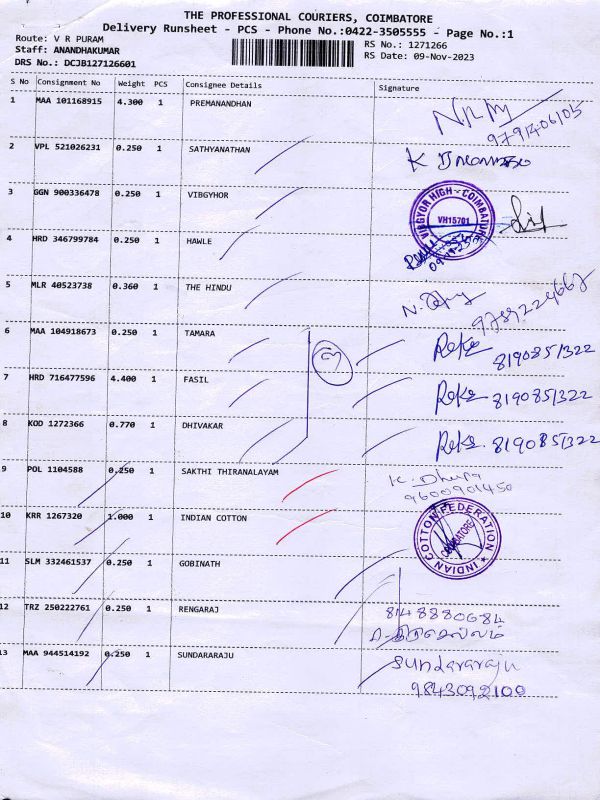 THE PROFESSIONAL COURIERS, COIMBATORE
Delivery Runsheet - PCS - Phone No.:0422-3505555 - Page No.:1
Route: V R PURAM
Staff: ANANDHAKUMAR
DRS No.: DCJB127126601
RS No.: 1271266
RS Date: 09-Nov-2023
S No Consignment No Weight PCS Consignee Details Signature
1 MAA 101168915 4.300 1 PREMANANDHAN
9791406105
2 VPL 521026231 0.250 1 SATHYANATHAN
K
3 GGN 900336478 0.250 1 VIBGYHOR
VIBGYOR HIGH - COIMBATORE
VH15701
4 HRD 346799784 0.250 1 HAWLE
5 MLR 40523738 0.360 1 THE HINDU
9789224667
6 MAA 104918673 0.250 1 TAMARA
3
8190851322
7 HRD 716477596 4.400 1 FASIL
8190851322
8 KOD 1272366 0.770 1 DHIVAKAR
8190851322
9 POL 1104588 0.250 1 SAKTHI THIRANALAYAM
K. Dhura
9600901450
10 KRR 1267320 1.000 1 INDIAN COTTON
INDIAN COTTON FEDERATION
COIMBATORE
11 SLM 332461537 0.250 1 GOBINATH
12 TRZ 250222761 0.250 1 RENGARAJ
8148880684
13 MAA 944514192 0.250 1 SUNDARARAJU
Sundararaju
9843092100